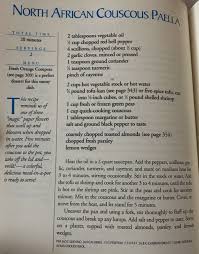 NORTH AFRICAN COUSCOUS PAELLA
TOTAL TIME
20 minutes
SERVINGS
MENU
Fresh Orange Compote
(see page 303) is a perfect
dessert for this sunny
dish.
This recipe
reminds us of
one of those
"magic" paper flowers
that swell up and
blossom when dropped
in water. Five minutes
after you add the
couscous to the pot, you
take off the lid and—
voilà!—a colorful,
delicious meal-in-a-pot
is ready to
2 tablespoons vegetable oil
½ cup chopped red bell pepper
4 scallions, chopped (about ½ cup)
2 garlic cloves, minced or pressed
1 teaspoon ground coriander
½ teaspoon turmeric
pinch of cayenne
2 cups hot vegetable stock or hot water
½ pound tofu-kan (see page 361) or five-spice tofu, cut
into ½-inch cubes, or ½ pound shelled shrimp
1 cup fresh or frozen green peas
1 cup quick-cooking couscous
1 tablespoon margarine or butter
salt and ground black pepper to taste
coarsely chopped toasted almonds (see page 351)
chopped fresh parsley
lemon wedges
Heat the oil in a 2-quart saucepan. Add the peppers, scallions, gar-
lic, coriander, turmeric, and cayenne, and sauté on medium heat for
about 3 to 4 minutes, until the onions are soft. Stir in the stock or water. Add
the tofu or shrimp and cook for another 3 to 4 minutes, until the tofu
is hot or the shrimp are pink. Stir in the peas and cook for another
minute. Mix in the couscous and the margarine or butter. Cover,
remove from the heat, and let stand for 5 minutes.
Uncover the pan and using a fork, stir thoroughly to fluff up the
couscous and break up any lumps. Add salt and pepper to taste. Serve
on a platter, topped with toasted almonds, parsley, and lemon
wedges.